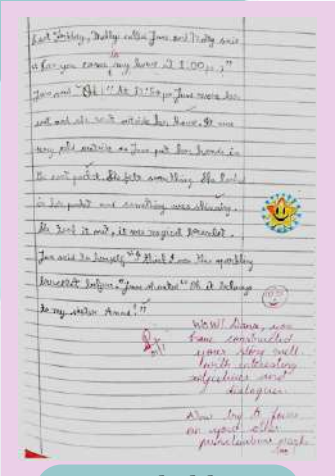 Last Sunday, Molly called June and Molly said
"Can you come in my house at 1:00 p.m."
June said "Ok!" At 12:50 pm June wore her
coat and she went outside her house. It was
very cold outside so June put her hands in
the coat pocket. She felt something. She looked
in her pocket and something was shining.
She took it out, it was magical bracelet.
June said to herself "I think I saw this sparkling
bracelet before." June shouted "Oh it belongs
to my sister Anna!"
WOW! you
have constructed
your story well
with interesting
adjectives and
dialogues.
Now try to focus
on your other
punctuation marks